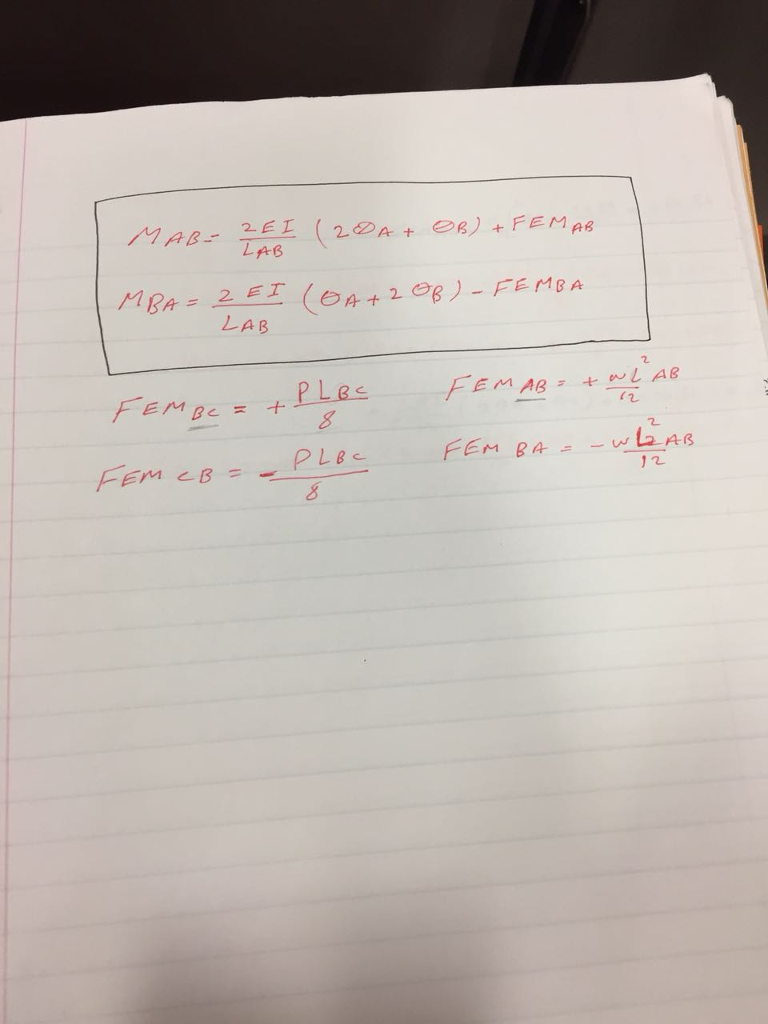 MAB = 2EI/LAB (2θA + θB) + FEMAB
MBA = 2EI/LAB (θA + 2θB) - FEMBA
FEMBC = + PLBC/8
FEMAB = + wL²AB/12
FEMCB = - PLBC/8
FEMBA = - wL²AB/12